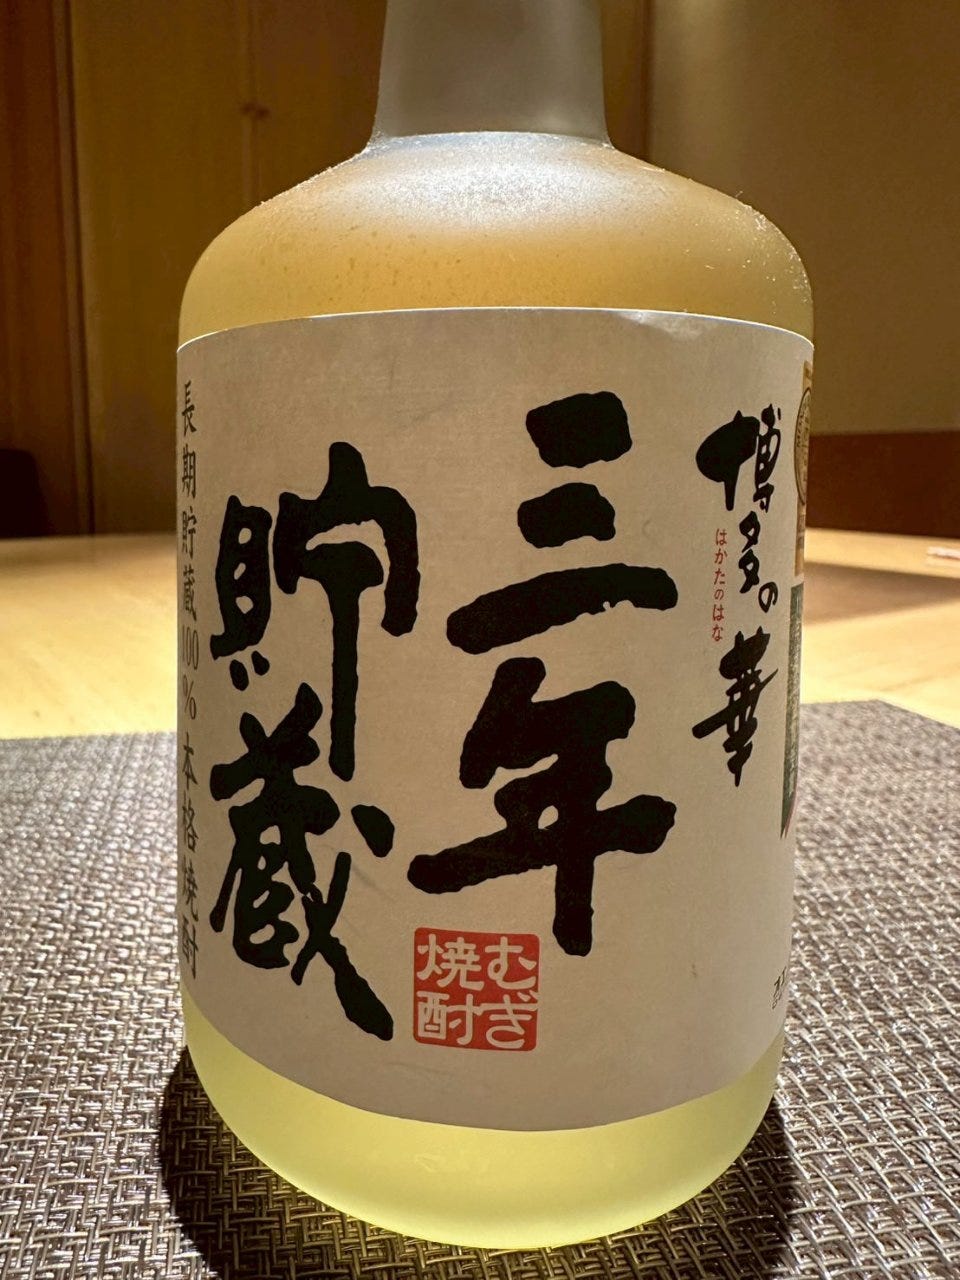 博多の華
はかたのはな
三年
貯蔵
むぎ
焼酎
長期貯蔵100%本格焼酎